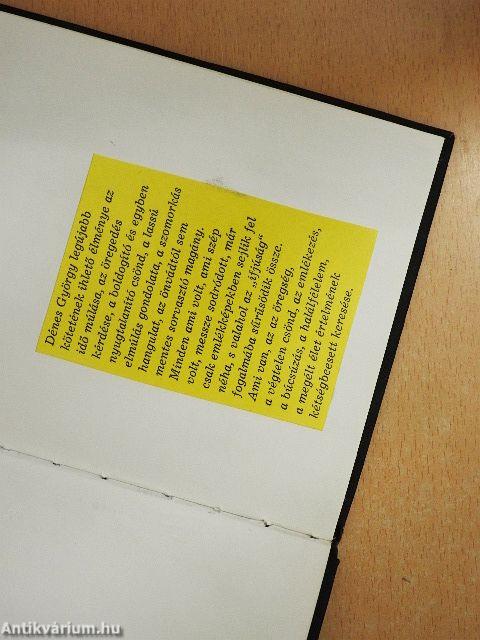 Dénes György legújabb
kötetének ihlető élménye az
idő múlása, az öregedés
kérdése, a boldogító és egyben
nyugtalanító csönd, a lassú
elmúlás gondolata, a szomorkás
hangulat, az önvádtól sem
mentes sorvasztó magány.
Minden ami volt, ami szép
volt, messze sodródott, már
csak emlékképekben sejlik fel
néha, s valahol az „ifjúság“
fogalmába sűrűsödik össze.
Ami van, az az öregség,
a végtelen csönd, az emlékezés,
a búcsúzás, a halálfélelem,
a megélt élet értelmének
kétségbeesett keresése.
Antikvárium.hu